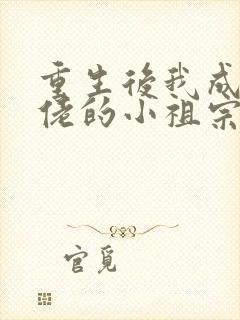 重生後我成
佬的小祖宗
官覓